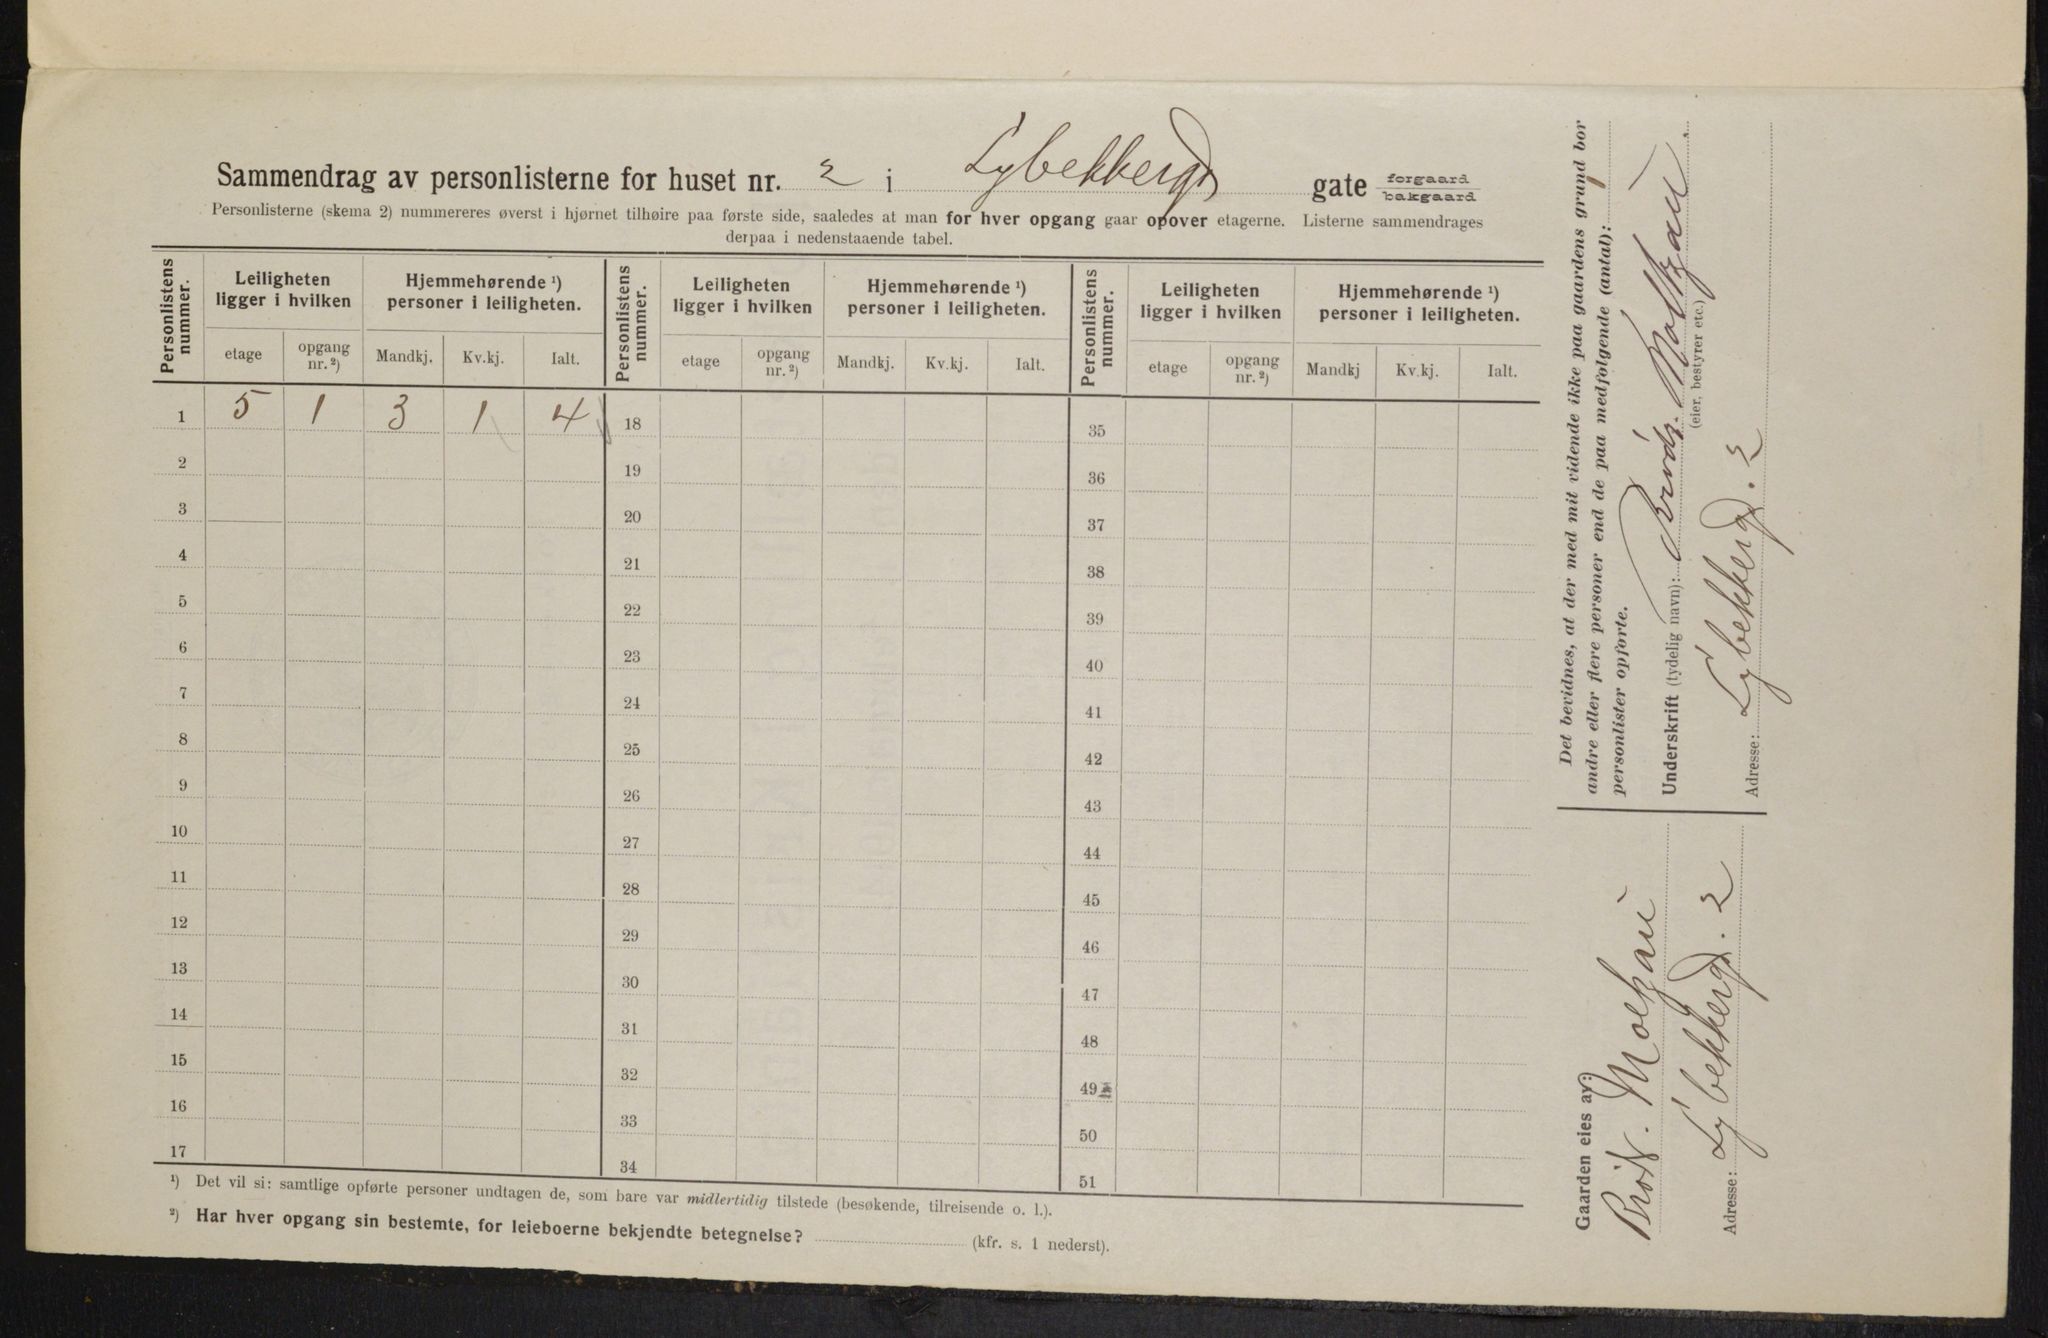 Sammendrag av personlisterne for huset nr. 2 i Lybekkergd gate forgaard bakgaard
Personlisterne (skema 2) nummereres øverst i hjørnet tilhøire paa første side, saaledes at man for hver opgang gaar opover etagerne. Listerne sammendrages
derpaa i nedenstaaende tabel.
Personlistens nummer. Leiligheten ligger i hvilken Hjemmehørende ¹) personer i leiligheten. Personlistens nummer. Leiligheten ligger i hvilken Hjemmehørende ¹) personer i leiligheten. Personlistens nummer. Leiligheten ligger i hvilken Hjemmehørende ¹) personer i leiligheten.
etage opgang nr. ²) Mandkj. Kv.kj. Ialt. etage opgang nr. ²) Mandkj. Kv.kj. Ialt. etage opgang nr. ²) Mandkj Kv.kj. Ialt.
1 5 1 3 1 4 18 35
2 19 36
3 20 37
4 21 38
5 22 39
6 23 40
7 24 41
8 25 42
9 26 43
10 27 44
11 28 45
12 29 46
13 30 47
14 31 48
15 32 49
16 33 50
17 34 51
¹) Det vil si: samtlige opførte personer undtagen de, som bare var midlertidig tilstede (besøkende, tilreisende o. l.).
²) Har hver opgang sin bestemte, for leieboerne bekjendte betegnelse? (kfr. s. 1 nederst).
Det bevidnes, at der med mit vidende ikke paa gaardens grund bor
andre eller flere personer end de paa medfølgende (antal): 1
personlister opførte.
Underskrift (tydelig navn): Moltzau
(eier, bestyrer etc.)
Adresse: Lybekkergd. 2
Gaarden eies av:
Brdr. Moltzau
Adresse: Lybekkergd. 2